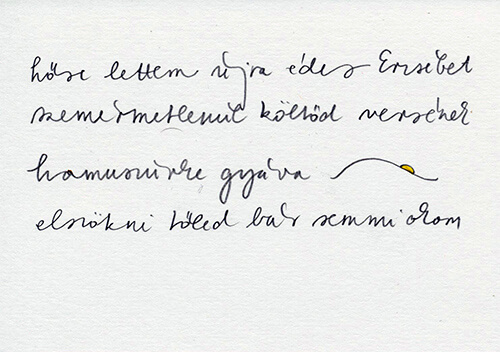 hőse lettem újra édes Erzsébet
szemérmetlenül költőd versének
hamuszürke gyáva
elszökni tőled bár semmi okom